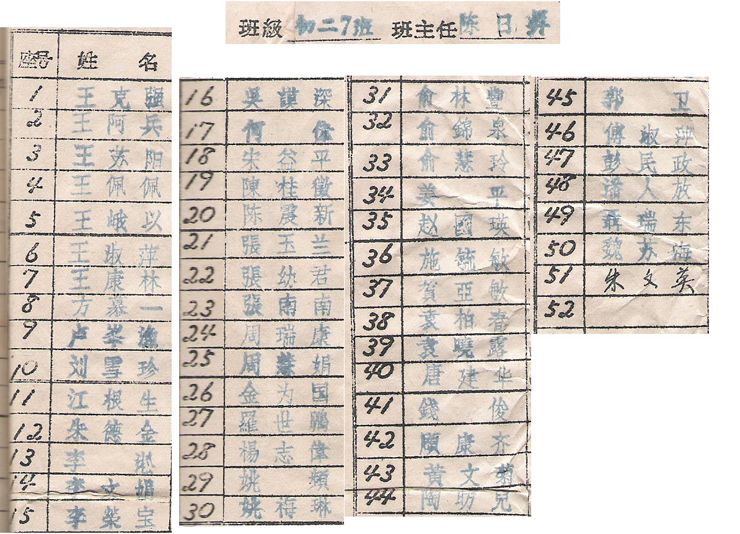 班級 初二7班 班主任 陈日
座号 姓 名
1 王克強
2 王阿兵
3 王苏阳
4 王佩佩
5 王峨以
6 王淑萍
7 王康林
8 方慕一
9 卢
10 刘雪珍
11 江根生
12 朱德金
13 李
14 李文娟
15 李榮宝
16 吳謹深
17 何偉
18 宋谷平
19 陳桂徽
20 陈晨新
21 張玉兰
22 張幼君
23 張南南
24 周瑞康
25 周慧娟
26 金为国
27 羅世鵬
28 楊志偉
29 姚頻
30 姚梅琳
31 俞林豐
32 俞錦泉
33 俞慧玲
34 姜平
35 赵國瑛
36 施毓敏
37 賀亞敏
38 袁柏春
39 袁曉露
40 唐建华
41 錢俊
42 顧康齐
43 黃文菊
44 陶助兒
45 郭卫
46 傅淑萍
47 彭民政
48 潘人放
49 聂瑞东
50 魏苏海
51 朱文英
52